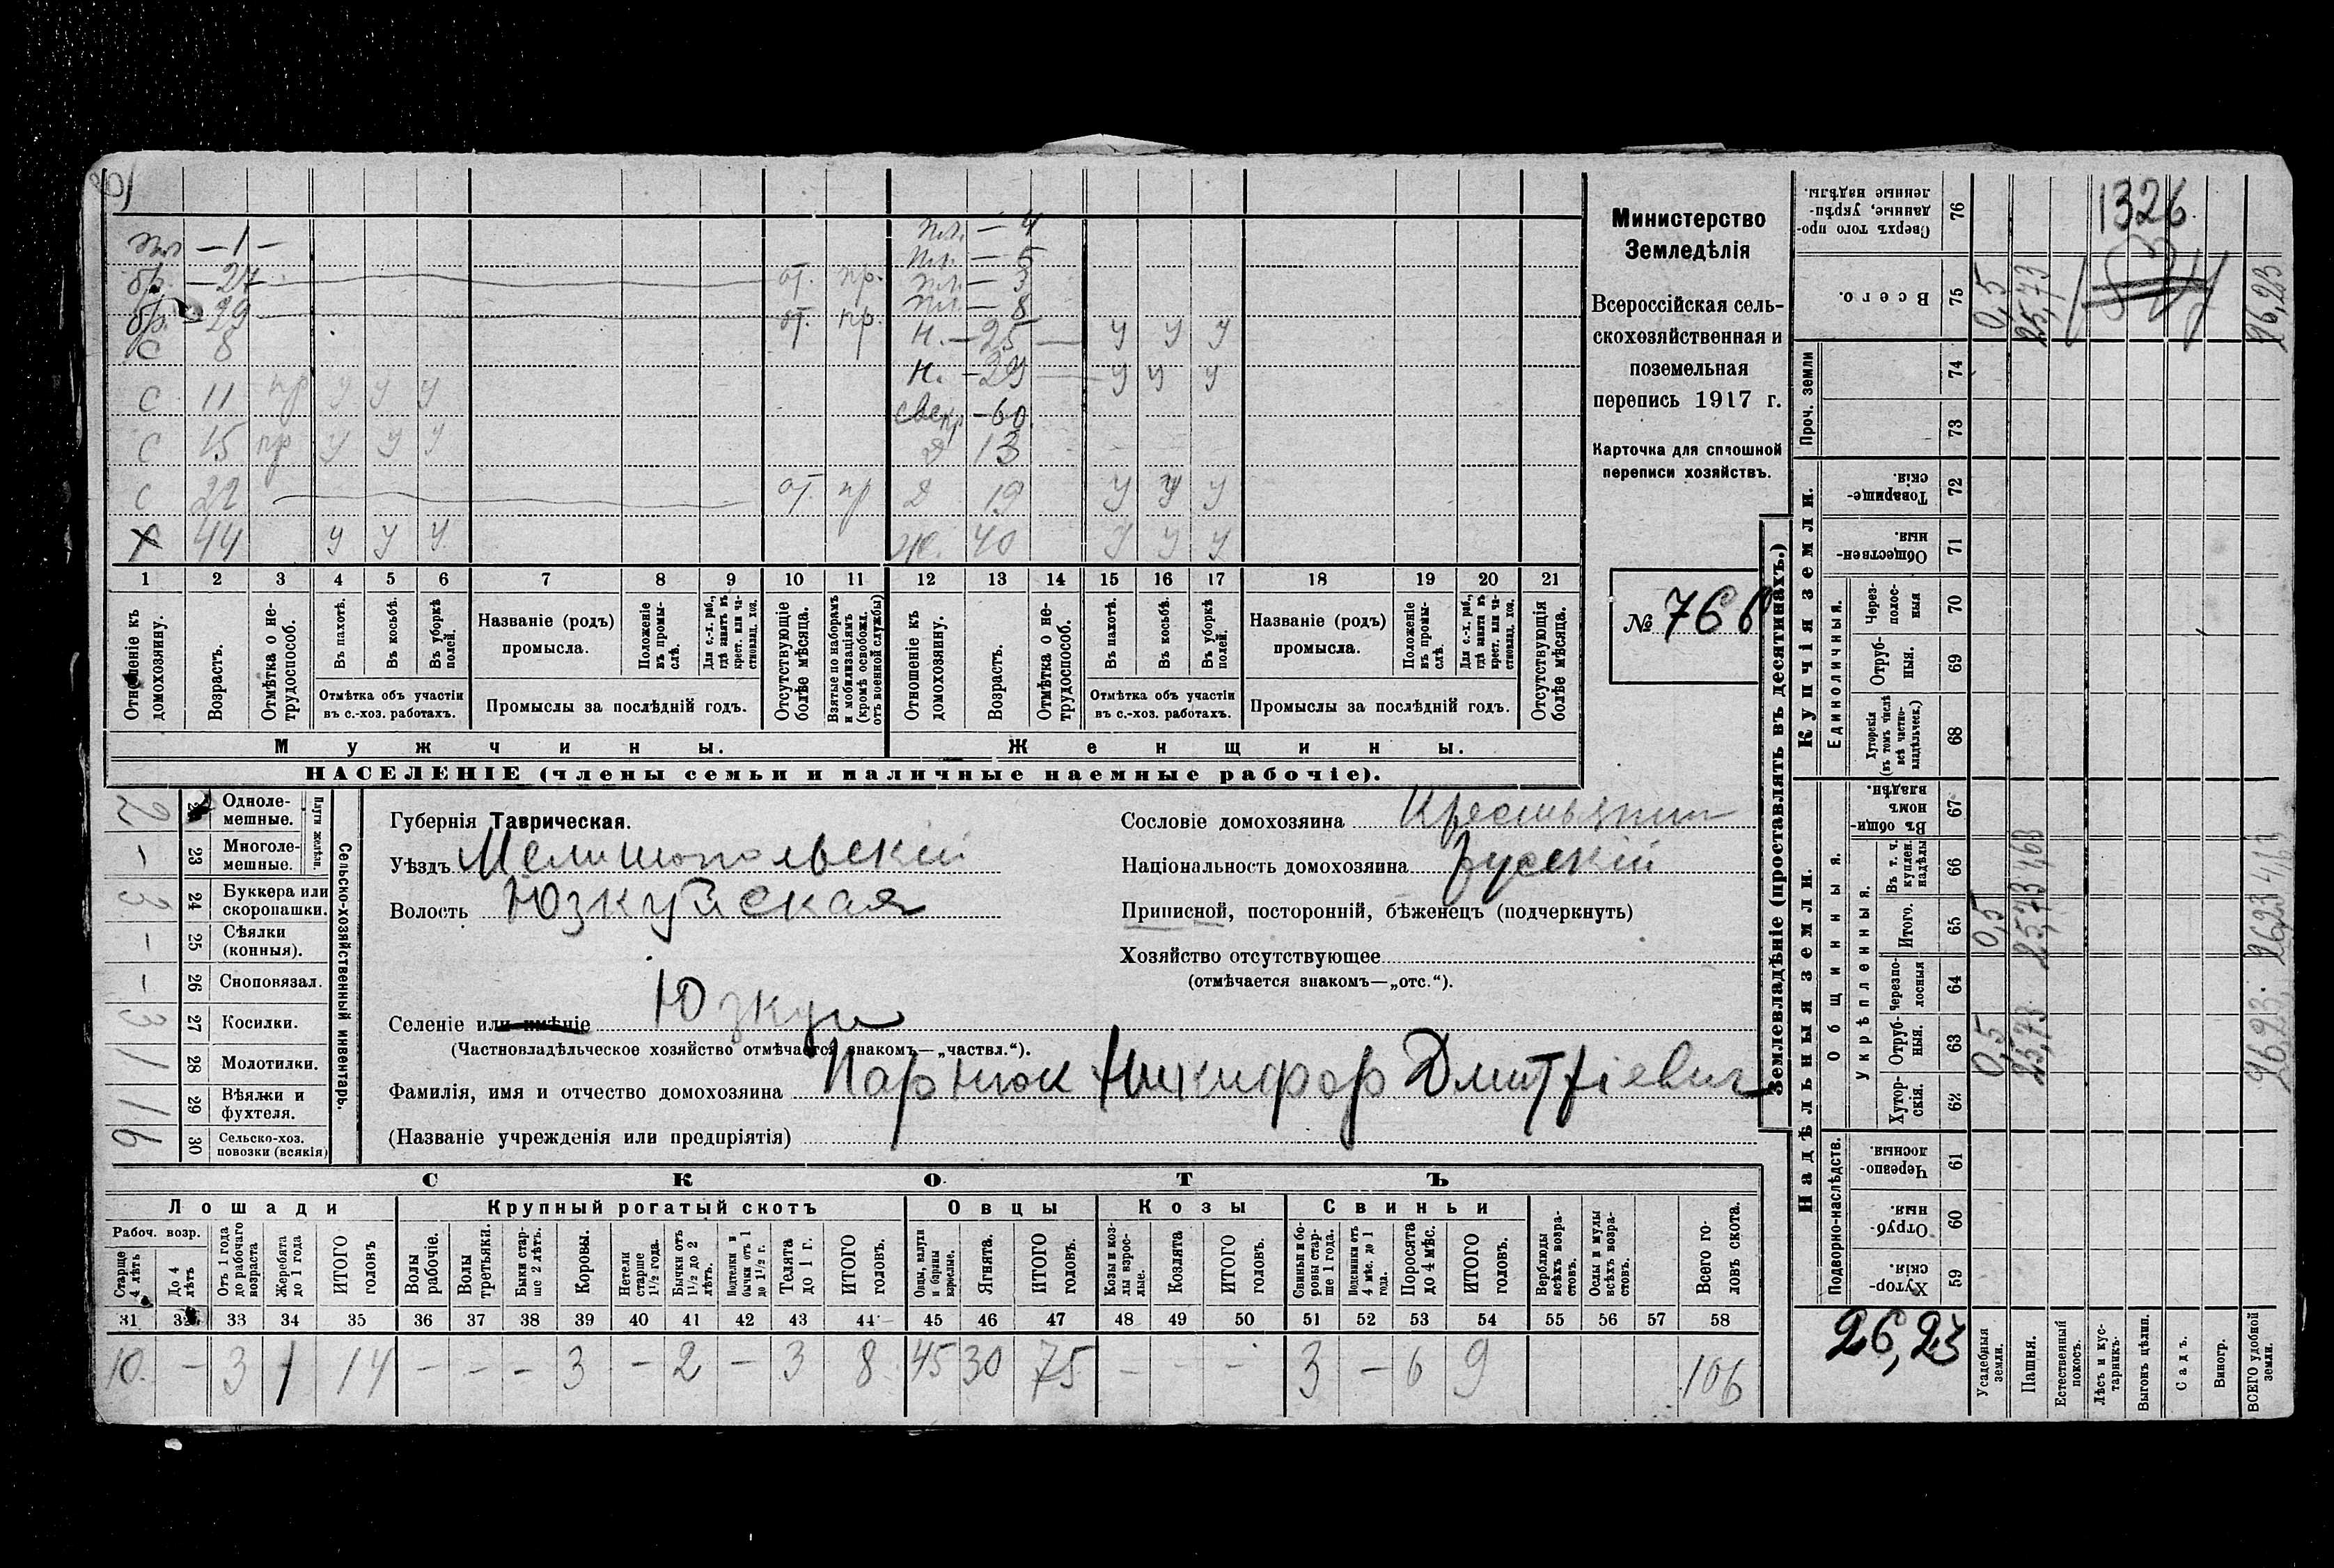 1326
пл — 1 —
бр. — 24 — от. пр.
бр. — 29 — от. пр.
С 8
С 11 пр у у у
С 15 пр у у у
С 22 — от. пр
Х 44 у у у
пл. — 4
пл. — 5
пл. — 3
пл. — 8
н. — 25 — у у у
н. — 29 — у у у
свекр — 60
д 13
д 19 у у у
ж. 40 у у у
1 2 3 4 5 6 7 8 9 10 11 12 13 14 15 16 17 18 19 20 21
Отношеніе къ домохозяину.
Возрастъ.
Отмѣтка о нетрудоспособ.
Въ пахотѣ.
Въ косьбѣ.
Въ уборкѣ полей.
Отмѣтка объ участіи въ с.-хоз. работахъ.
Названіе (родъ) промысла.
Положеніе въ промыслѣ.
Для с.-х. раб., гдѣ занятъ въ крест. или частновлад. хоз.
Промыслы за послѣдній годъ.
Отсутствующіе болѣе мѣсяца.
Взятые по наборамъ и мобилизаціямъ (кромѣ освобожд. отъ военной службы)
Отношеніе къ домохозяину.
Возрастъ.
Отмѣтка о нетрудоспособ.
Въ пахотѣ.
Въ косьбѣ.
Въ уборкѣ полей.
Отмѣтка объ участіи въ с.-хоз. работахъ.
Названіе (родъ) промысла.
Положеніе въ промыслѣ.
Для с.-х. раб., гдѣ занята въ крест. или частновлад. хоз.
Промыслы за послѣдній годъ.
Отсутствующія болѣе мѣсяца.
Мужчины.
Женщины.
НАСЕЛЕНІЕ (члены семьи и наличные наемные рабочіе).
Министерство
Земледѣлія
Всероссійская сель-
скохозяйственная и
поземельная
перепись 1917 г.
Карточка для сплошной
переписи хозяйствъ.
№ 766
Губернія Таврическая.
Уѣздъ Мелитопольскій
Волость Юзкуйская
Селеніе или имѣніе Юзкуи
(Частновладѣльческое хозяйство отмѣчается знакомъ—„частвл.“).
Фамилія, имя и отчество домохозяина Парнюк Никифор Дмитріевич
(Названіе учрежденія или предпріятія)
Сословіе домохозяина Крестьянин
Національность домохозяина русскій
Приписной, посторонній, бѣженецъ (подчеркнуть)
Хозяйство отсутствующее
(отмѣчается знакомъ—„отс.“).
Сельско-хозяйственный инвентарь.
Плуги желѣзн.
Однолемешные. 2
23 Многолемешные. –
24 Буккера или скоропашки. 3
25 Сѣялки (конныя). –
26 Сноповязал. –
27 Косилки. 3
28 Молотилки. 1
29 Вѣялки и фухтеля. 1
30 Сельско-хоз. повозки (всякія) 6
СКОТЪ
Лошади
Рабоч. возр.
Старше 4 лѣтъ
До 4 лѣтъ
Отъ 1 года до рабочаго возраста
Жеребята до 1 года
ИТОГО головъ
Крупный рогатый скотъ
Волы рабочіе.
Волы третьяки.
Быки старше 2 лѣтъ.
Коровы.
Нетели старше 1½ года.
Бычки отъ 1½ до 2 лѣтъ.
Подтелки и бычки отъ 1 до 1½ г.
Телята до 1 г.
ИТОГО головъ.
Овцы
Овцы, валухи и бараны взрослые.
Ягнята.
ИТОГО головъ.
Козы
Козы и козлы взрослые.
Козлята
ИТОГО головъ.
Свиньи
Свиньи и боровы старше 1 года.
Подсвинки отъ 4 мѣс. до 1 года.
Поросята до 4 мѣс.
ИТОГО головъ.
Верблюды всѣхъ возрастовъ.
Ослы и мулы всѣхъ возрастовъ.
Всего головъ скота.
31 32 33 34 35 36 37 38 39 40 41 42 43 44 45 46 47 48 49 50 51 52 53 54 55 56 57 58
10. – 3 1 14 – – – 3 – 2 – 3 8 45 30 75 – – – 3 – 6 9 106
Землевладѣніе (проставлять въ десятинахъ.)
Сверхъ того проданные, укрѣпленные надѣлы. 76
Всего. 75 0,5 25,73 26,23
Купчія земли.
Проч. земли 74 73
Товарищескія 72
Общественныя. 71
Единоличныя.
Черезполосныя 70
Отрубныя. 69
Хуторскія (въ томъ числѣ всѣ частновладѣльческ.) 68
Надѣльныя земли.
Общинныя.
Въ общинномъ владѣн. 67
Укрѣпленныя.
Въ т. ч. куплен. надѣлы 66
Итого. 65 0,5 25,73 26,23
Черезполосныя 64
Отрубныя. 63 0,5 25,73 26,23
Хуторскія. 62
Подворно-наслѣдств.
Черезполосныя. 61
Отрубныя. 60
Хуторскія 59
26,23
Усадебныя земли.
Пашня.
Естественный покосъ.
Лѣсъ и кустарникъ.
Выгонъ цѣлин.
Садъ.
Виногр.
ВСЕГО удобной земли.